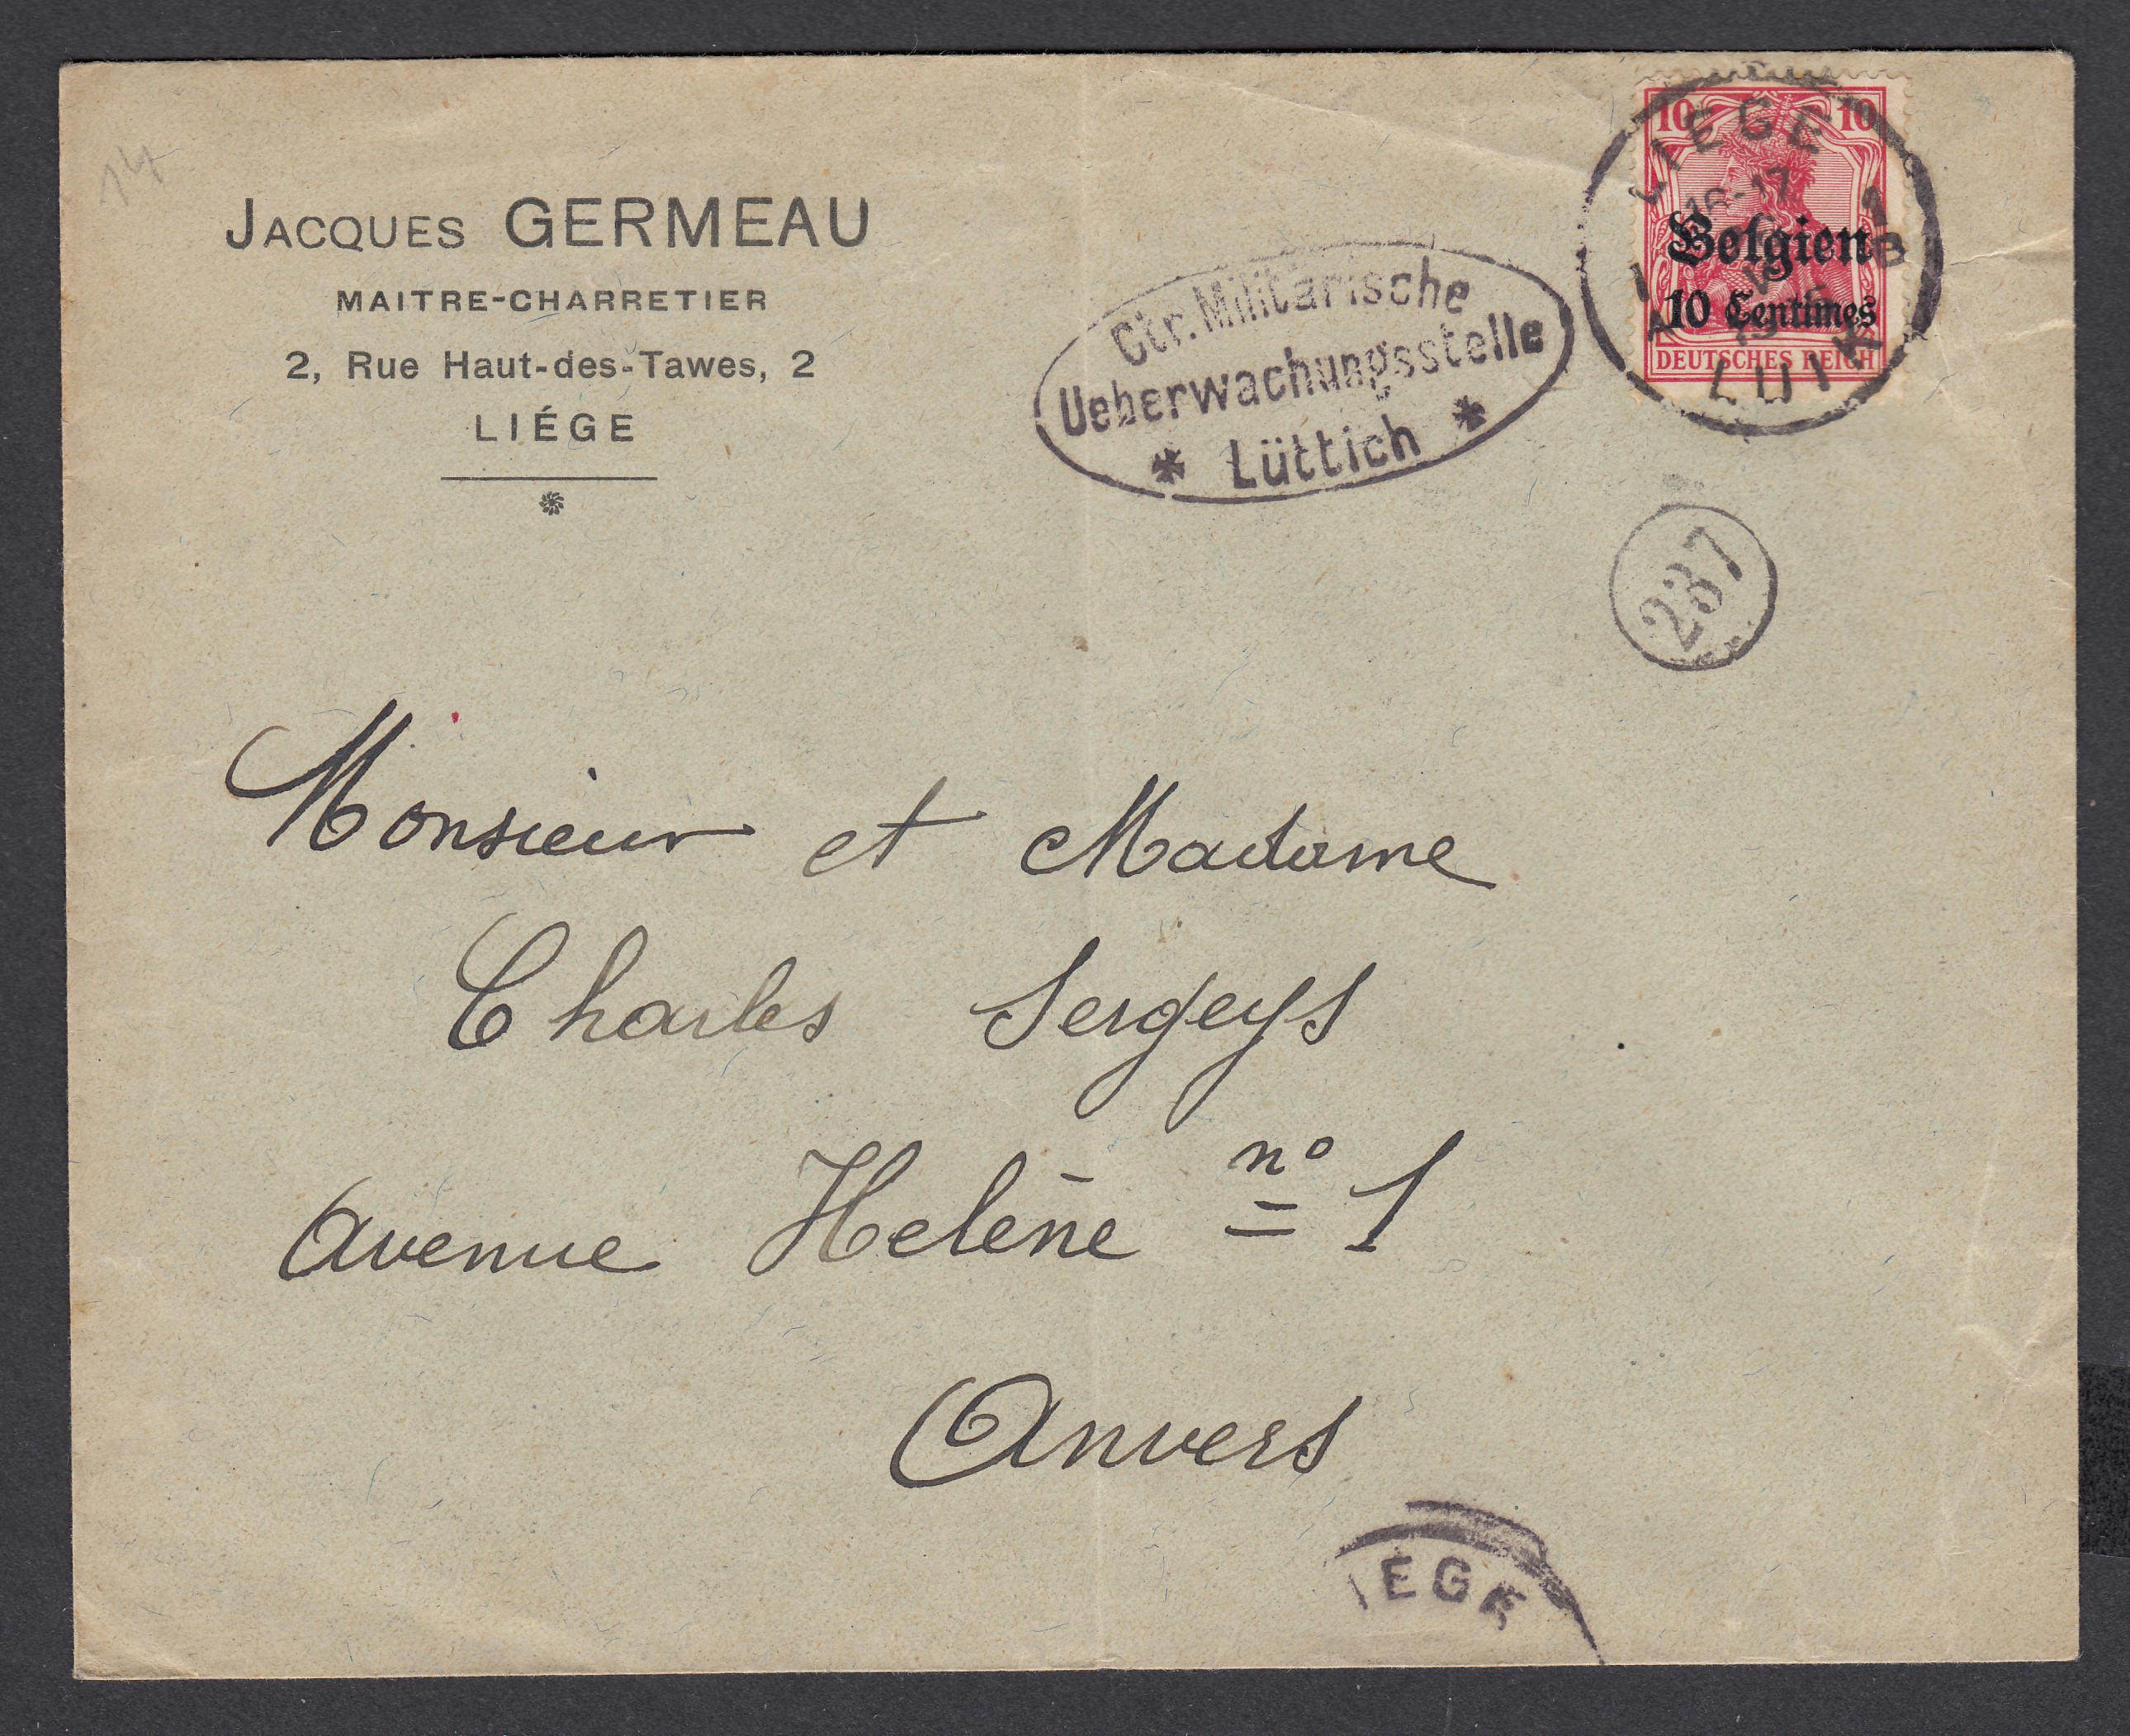 14
JACQUES GERMEAU
MAITRE-CHARRETIER
2, Rue Haut-des-Tawes, 2
LIÉGE
Ctr. Militärische
Ueberwachungsstelle
* Lüttich *
10 10
Belgien
10 Centimes
DEUTSCHES REICH
LIEGE 1
16-17
LUIK
237
Monsieur et Madame
Charles Sergeys
Avenue Helène nº 1
Anvers
IEGE